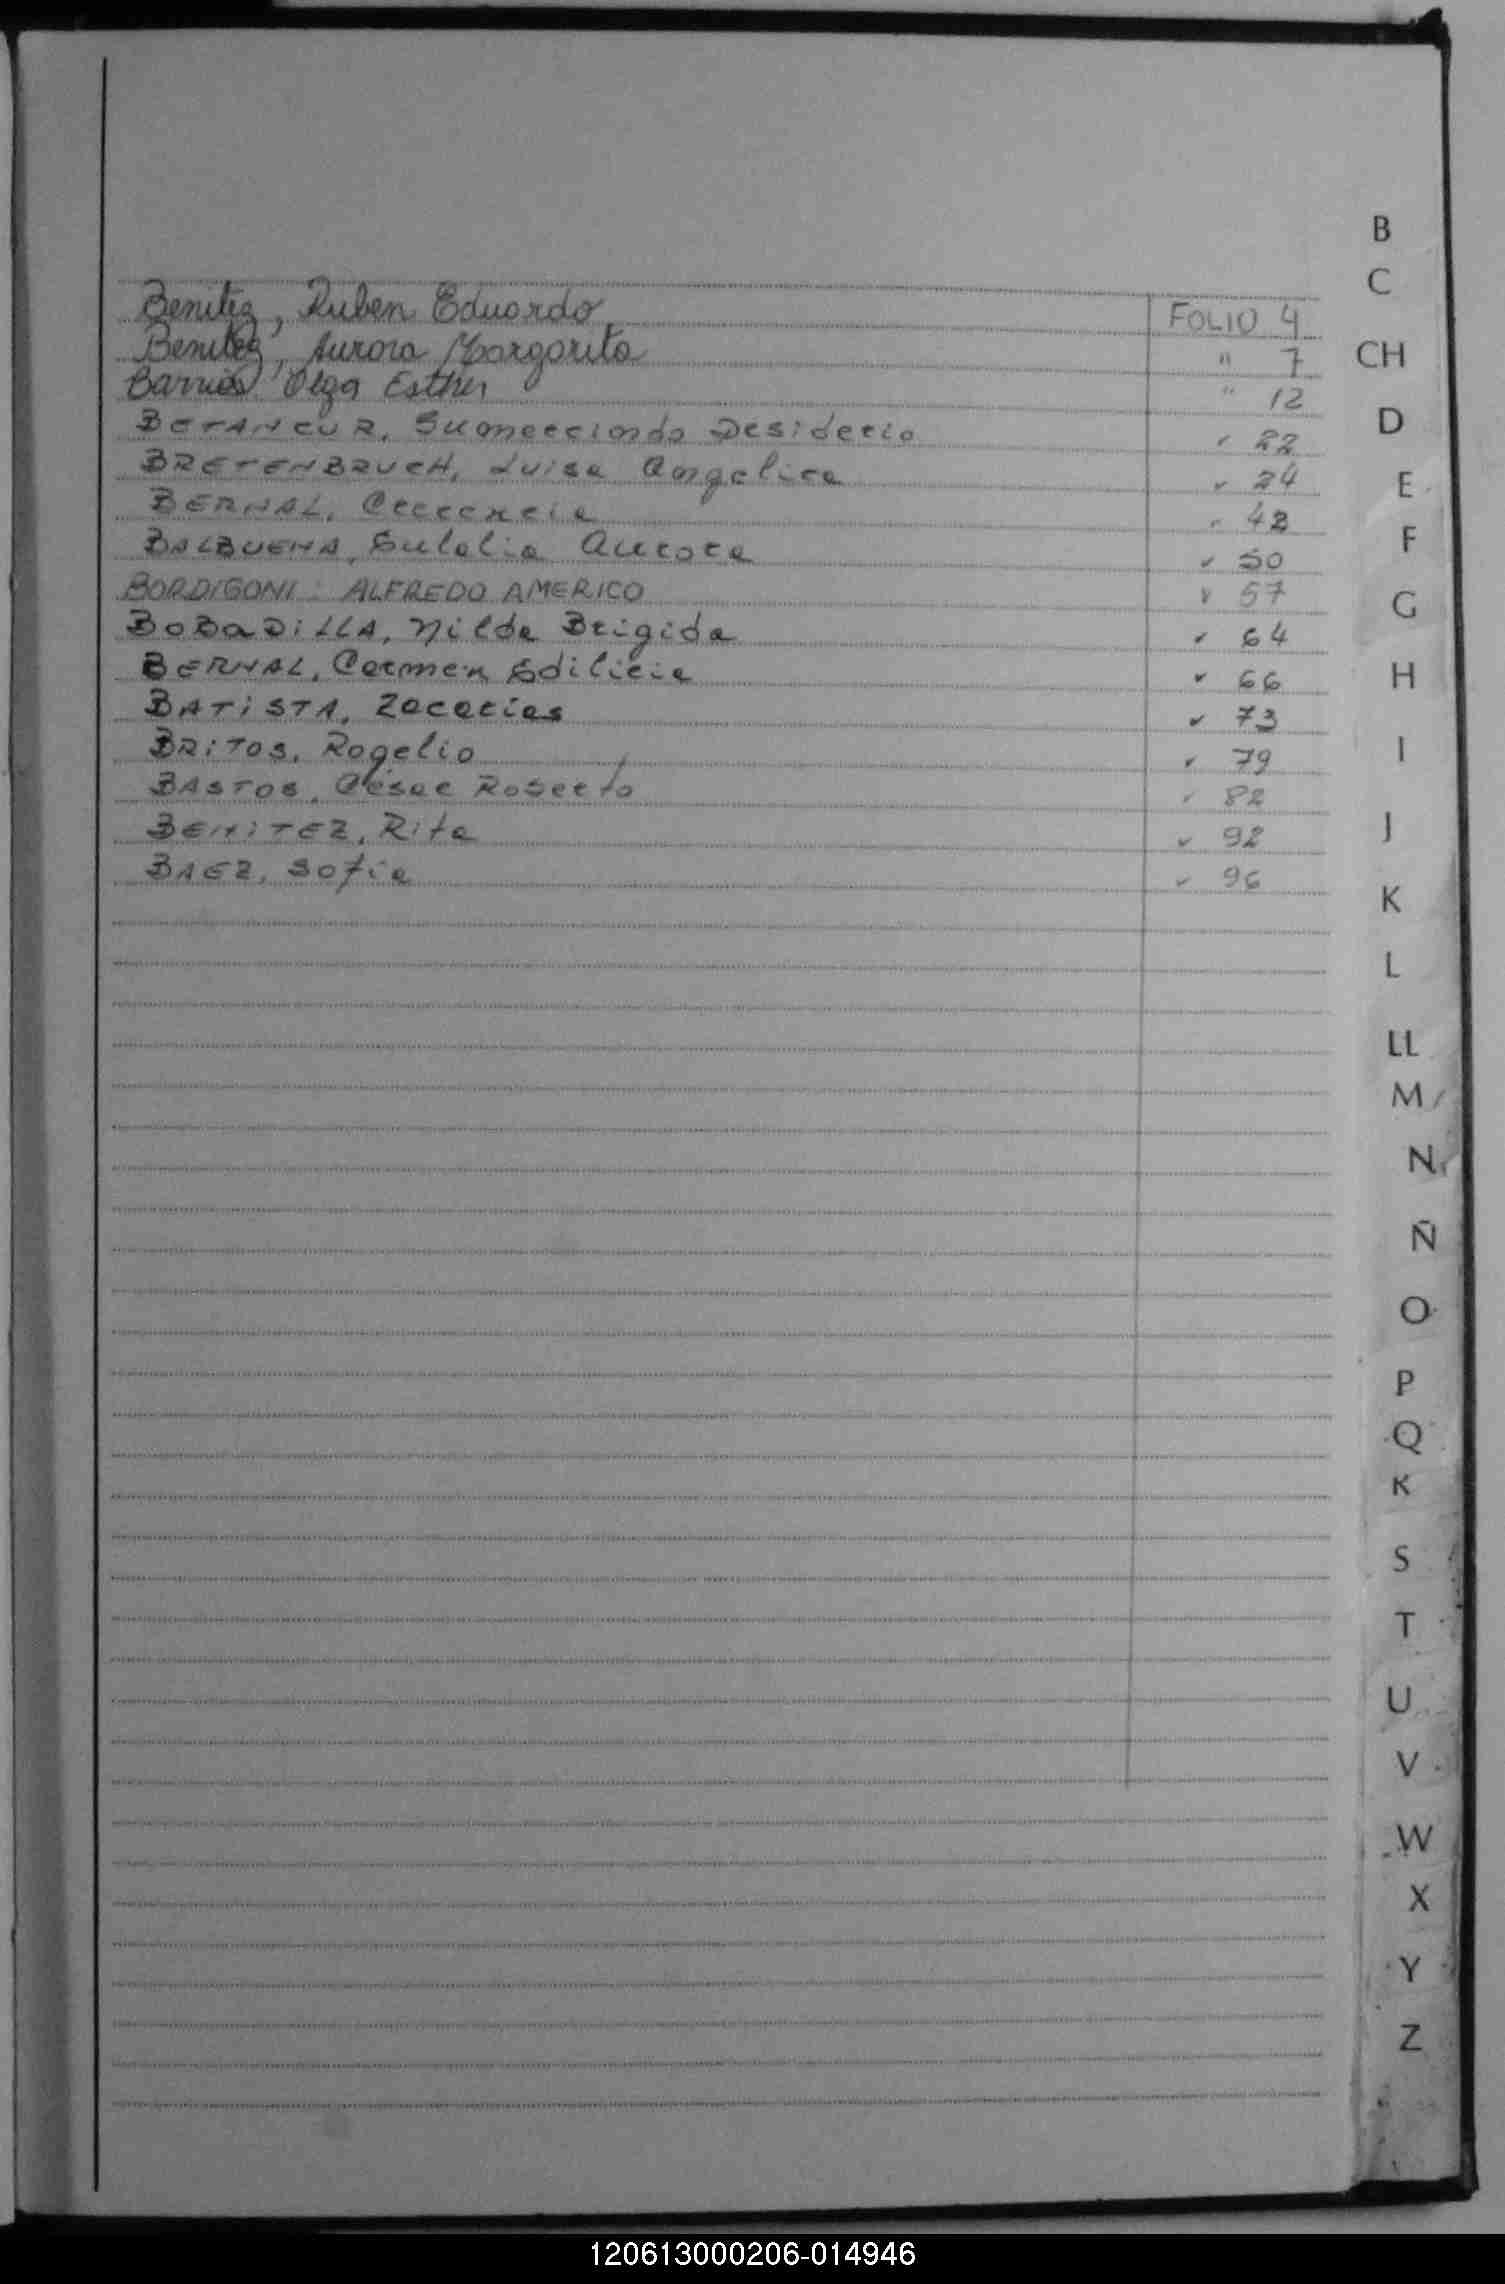 B
C
CH
D
E
F
G
H
I
J
K
L
LL
M
N
Ñ
O
P
Q
R
S
T
U
V
W
X
Y
Z
Benitez, Ruben Eduardo FOLIO 4
Benitez, Aurora Margarita " 7
Barrios Olga Esther " 12
BETANCUR, Desiderio " 22
BRETENBRUCH, Luisa Angelica " 24
BERNAL, " 42
BALBUENA, Eulalia Aurora " 50
BORDIGONI ALFREDO AMERICO " 57
BOBADILLA, Nilda Brigida " 64
BERNAL, Carmen Edilicia " 66
BATISTA, Zacarias " 73
BRITOS, Rogelio " 79
BASTOS, César Roberto " 82
BENITEZ, Rita " 92
BAEZ, Sofia " 96
120613000206-014946